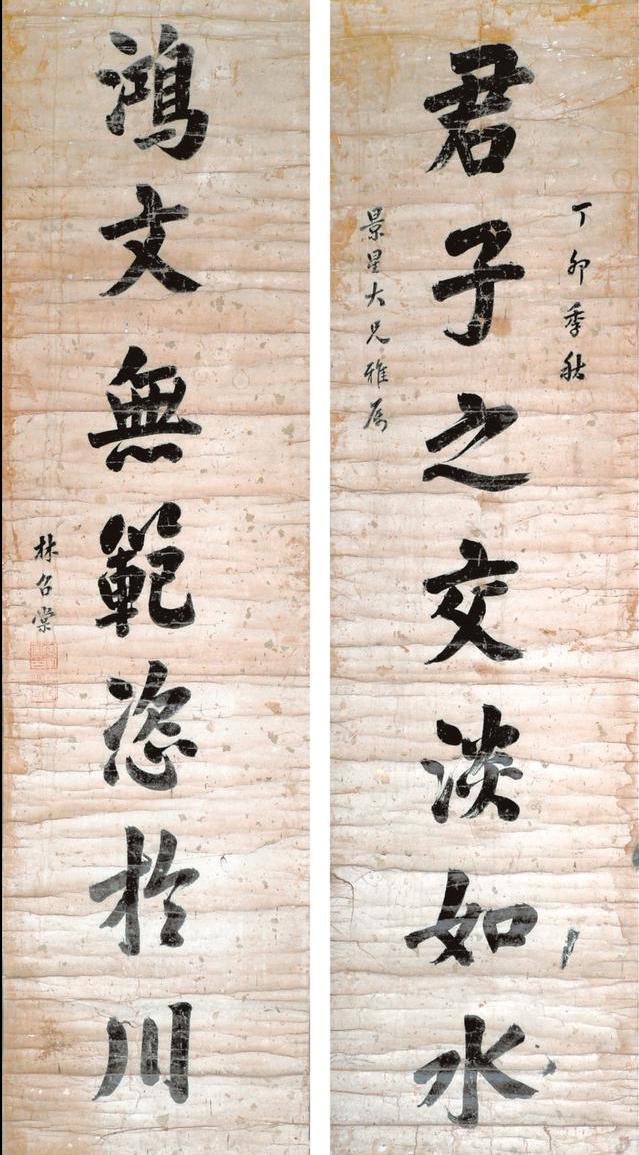 丁卯季秋
君子之交淡如水
景星大兄雅屬
鴻文無範恣於川
林召棠